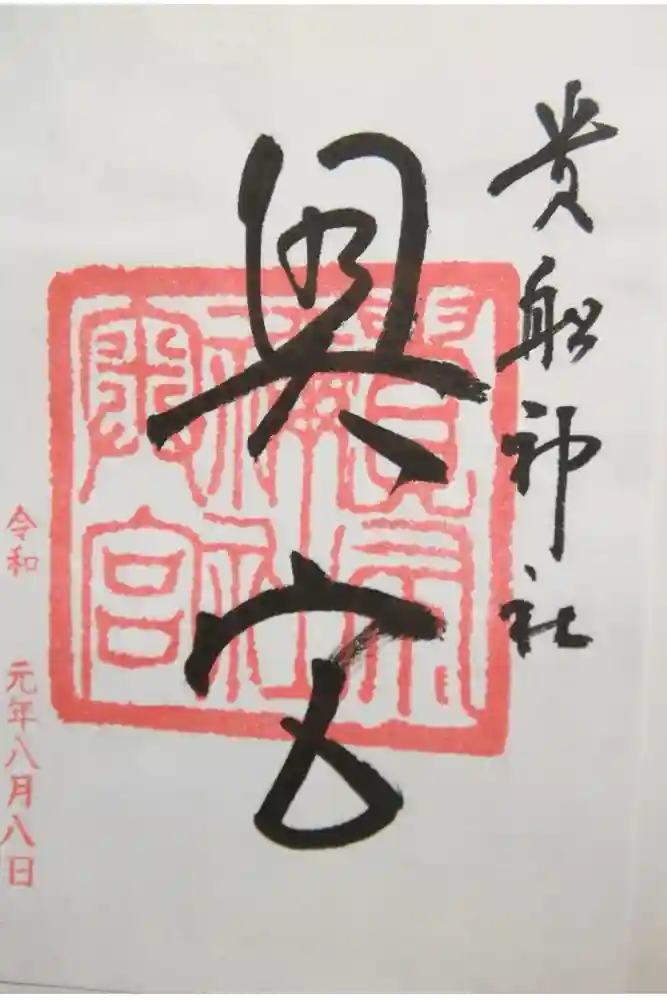 貴船神社
奥宮
令和 元年八月八日